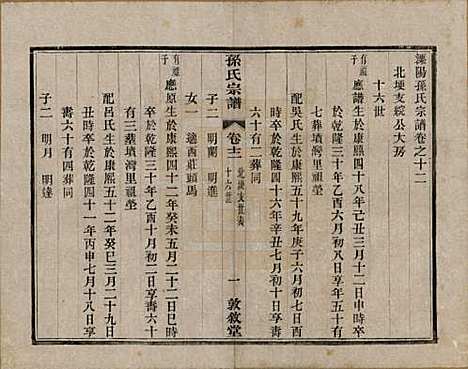 溧陽孫氏宗譜卷之十二
北埂支綻公大房
十六世
有進子 應譜生於康熙四十八年己丑三月十二日申時卒
於乾隆三十年乙酉六月初八日享年五十有
七葬墳灣里祖塋
配吳氏生於康熙五十九年庚子六月初七日酉
時卒於乾隆四十六年辛丑七月初十日享壽
六十有二葬同
子二 明蘭 明進
女一 適西莊頭馬
孫氏宗譜 卷十二 北埂支世表 十六世 一 敦敘堂
有子 應原生於康熙四十二年癸未五月二十二日巳時
卒於乾隆三十年乙酉十月初二日享壽六十
有三葬墳灣里祖塋
配呂氏生於康熙四十年辛巳三月二十九日
丑時卒於乾隆四十一年丙申七月十八日享
壽六十有四葬同
子二 明月 明達